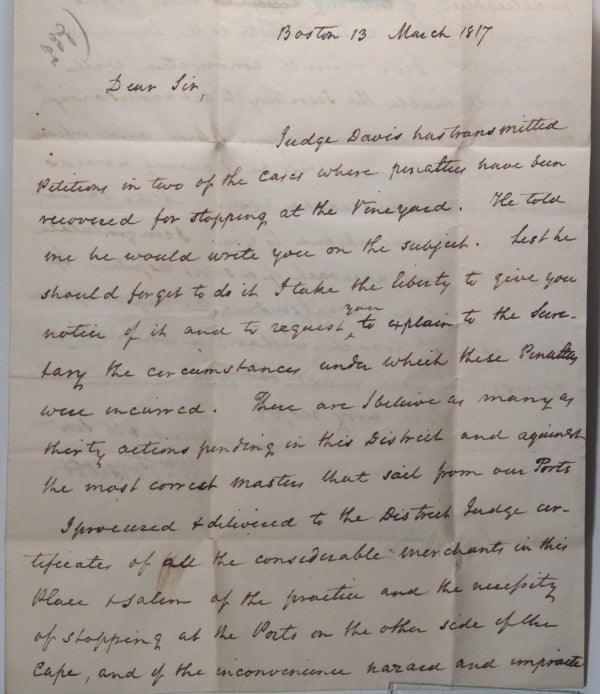 Boston 13 March 1817
Dear Sir,
Judge Davis has transmitted
Petitions in two of the cases where penalties have been
recovered for stopping at the Vineyard. He told
me he would write you on the subject. Lest he
should forget to do it I take the liberty to give you
notice of it and to request you to explain to the Secre-
tary the circumstances under which these Penalties
were incurred. There are I believe as many as
thirty actions pending in this District and against
the most correct masters that sail from our Ports
I procured & delivered to the District Judge cer-
tificates of all the considerable merchants in this
Place & Salem of the practice and the necessity
of stopping at the Ports on the other side of the
Cape, and of the inconvenience hazard and impracte